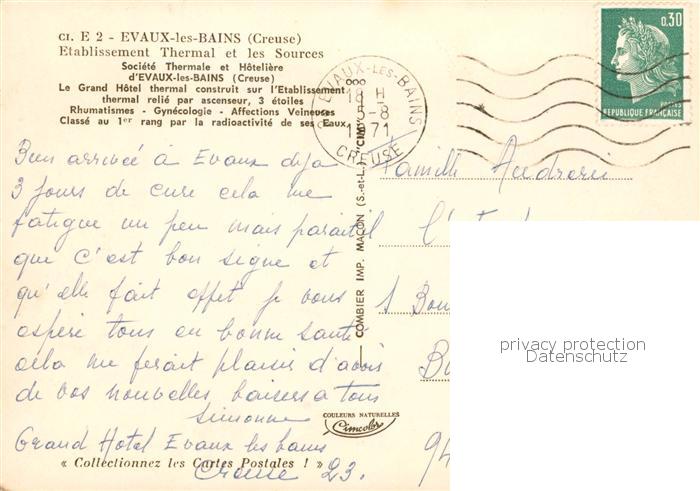 CI. E 2 - EVAUX-les-BAINS (Creuse)
Etablissement Thermal et les Sources
Société Thermale et Hôtelière
d'EVAUX-les-BAINS (Creuse)
Le Grand Hôtel thermal construit sur l'Etablissement
thermal relié par ascenseur, 3 étoiles
Rhumatismes - Gynécologie - Affections Veineuses
Classé au 1er rang par la radioactivité de ses Eaux
EVAUX-LES-BAINS
18 H
5-8
1971
CREUSE
0,30
POSTES
REPUBLIQUE FRANÇAISE
Bien arrivée à Evaux deja
3 jours de cure cela me
fatigue un peu mais parait il
que c'est bon signe et
qu'elle fait effet je vous
espère tous en bonne santé
cela me ferait plaisir d'avoir
de vos nouvelles baisers a tous
Simonne
Grand Hotel Evaux les bains
Creuse 23.
« Collectionnez les Cartes Postales ! »
COMBIER IMP. MACON (S.-et-L.) "CIM"
COULEURS NATURELLES
Cimcolor
Famille
1
94
privacy protection
Datenschutz